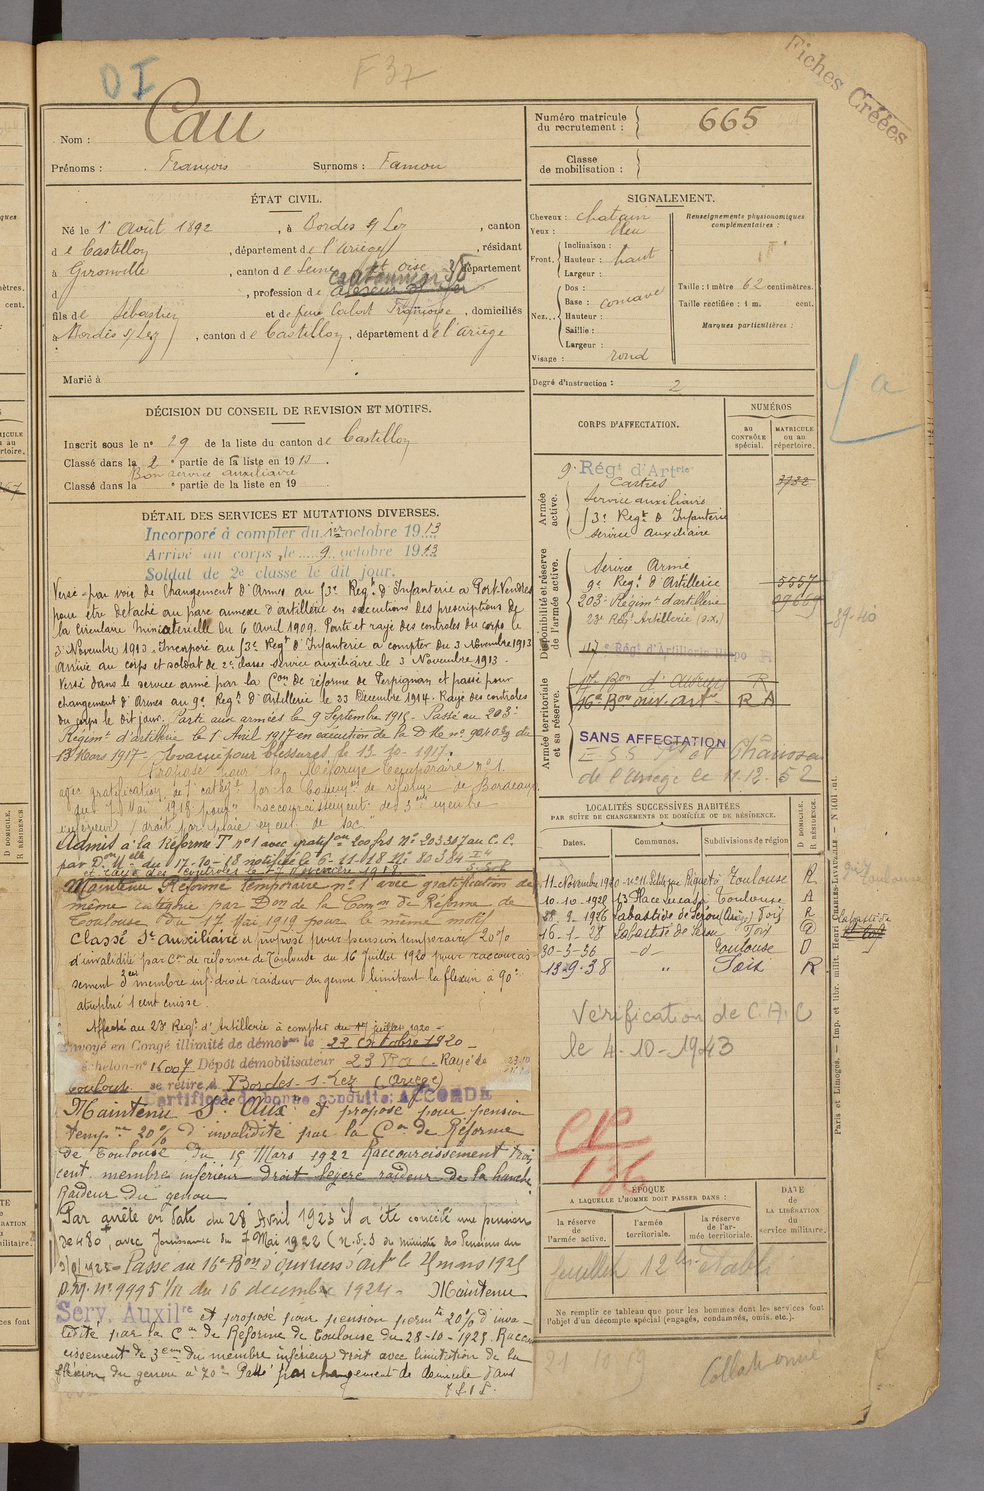 DI
F 37
Fiches Créées
Nom : Cau
Prénoms : François Surnoms : Famou
Numéro matricule du recrutement : 665
Classe de mobilisation :
ÉTAT CIVIL.
Né le 1er Août 1892, à Bordes s/ Lez, canton
de Castillon, département de l'Ariège, résidant
à Gironville, canton de Seine et oise, département
d , profession de
fils de Sébastien et de feue Calart Françoise, domiciliés
à Bordes s/ Lez, canton de Castillon, département de l'Ariège
Marié à
SIGNALEMENT.
Cheveux : chatain
Yeux : bleu
Front. Inclinaison :
Hauteur : haut
Largeur :
Nez... Dos :
Base : concave
Hauteur :
Saillie :
Largeur :
Visage : rond
Renseignements physionomiques complémentaires :
Taille : 1 mètre 62 centimètres.
Taille rectifiée : 1 m. cent.
Marques particulières :
Degré d'instruction : 2
DÉCISION DU CONSEIL DE REVISION ET MOTIFS.
Inscrit sous le no 29 de la liste du canton de Castillon
Classé dans la 2e partie de la liste en 1913.
Bon service auxiliaire
Classé dans la e partie de la liste en 19
DÉTAIL DES SERVICES ET MUTATIONS DIVERSES.
Incorporé à compter du 1er octobre 1913
Arrivé au corps le 9 octobre 1913
Soldat de 2e classe le dit jour.
Versé par voie de changement d'Armes au 53e Regt d'Infanterie à Port-Vendres
pour être détaché au parc annexe d'artillerie en exécutions des prescriptions de
la circulaire ministérielle du 6 Avril 1909. Porté et rayé des controles du corps le
3 Novembre 1913. Incorporé au 53e Regt d'Infanterie à compter du 3 Novembre 1913
Arrivé au corps et soldat de 2e classe service auxiliaire le 3 Novembre 1913.
Versé dans le service armé par la Con de réforme de Perpignan et passé pour
changement d'Armes au 9e Regt d'Artillerie le 23 Décembre 1914. Rayé des controles
du corps le dit jour. Parti aux armées le 9 Septembre 1915. Passé au 203e
Régimt d'artillerie le 1er Avril 1917 en exécution de la D.M. no 9240 3/3 du
13 Mars 1917. Evacué pour blessures le 13-10-1917.
Proposé pour la Réforme temporaire no 1
avec gratification de 7e catégie par la Common de réforme de Bordeaux
du 7 Mai 1918 pour "raccourcissement de 3 cm membre
inférieur droit par plaie en eut. de sac."
Admis à la Réforme T no 1 avec gratifon 200frs no 203307 au C.C.
par Don Mlle du 17-10-18 notifiée le 6-11-18 No 80334
et rayé des controles le 27 novembre 1918
Maintenu Réforme temporaire no 1 avec gratification de
même catégie par Don de la Comm de Réforme de
Toulouse du 17 Mai 1919 pour le même motif
Classé St Auxiliaire et proposé pour pension temporaire 20%
d'invalidité par Con de réforme de Toulouse du 16 juillet 1920 pour raccourcis-
sement 3 cm membre inf. droit raideur du genou limitant la flexion à 90°
atrophie 1 cent cuisse.
Affecté au 23 Regt d'Artillerie à compter du 17 juillet 1920
Envoyé en Congé illimité de démobon le 22 Octobre 1920
échelon no 16007 Dépôt démobilisateur 23 RAC Rayé de
Toulouse se retire à Bordes-s-Lez (Ariège)
Certificat de bonne conduite ACCORDÉ
Maintenu Sce Auxre et proposé pour pension
tempre 20% d'invalidité par la Con de Réforme
de Toulouse du 15 Mars 1922 Raccourcissement trois
cent. membre inférieur droit légère raideur de la hanche
Raideur du genou
Par arrêté en date du 28 Avril 1923 il a été concédé une pension
de 480f, avec jouissance du 7 Mai 1922
Passé au 16e Bon d'ouvriers d'artie le 25 mars 1925
D.M. no 9995 1/11 du 16 décembre 1924. Maintenu
Serv. Auxilre et proposé pour pension permte 20% d'inva-
lidité par la Con de Réforme de Toulouse du 28-10-1925. Raccour
cissement de 3 cm du membre inférieur droit avec limitation de la
flexion du genou à 70° Passé par changement de domicile dans
CORPS D'AFFECTATION.
NUMÉROS
AU CONTRÔLE spécial.
MATRICULE OU AU répertoire.
Armée active.
9e Régt d'Artie 3732
Castres
Service auxiliaire
53e Regt d'Infanterie
Service Auxiliaire
Disponibilité et réserve de l'armée active.
Service Armé
9e Regt d'Artillerie 5557
203e Régimt d'artillerie
23e Regt Artillerie
17e Régt d'Artillerie Hippo R
Armée territoriale et sa réserve.
17 Bon d' R
16e Bon ouv. artie R A
SANS AFFECTATION
de l'Ariège le 11.12.52
LOCALITÉS SUCCESSIVES HABITÉES
PAR SUITE DE CHANGEMENTS DE DOMICILE OU DE RÉSIDENCE.
Dates. Communes. Subdivisions de région
D DOMICILE. R RÉSIDENCE.
11-Novembre 1920 Toulouse R
10-10-1925 Toulouse A
28.2.1926 Labastide de Sérou Foix R
16-1-28 Labastide de Sérou Foix
30-3-36 -d- Toulouse D
13-9-38 " Foix R
Vérification de C.A.C
le 4-10-1943
CP
136
ÉPOQUE
A LAQUELLE L'HOMME DOIT PASSER DANS :
la réserve de l'armée active.
l'armée territoriale.
la réserve de l'armée territoriale.
DATE de LA LIBÉRATION du service militaire.
établi
Ne remplir ce tableau que pour les hommes dont les services font
l'objet d'un décompte spécial (engagés, condamnés, omis, etc.).
21 10 19
Collationné
Paris et Limoges. — Imp. et libr. milit. Henri CHARLES-LAVAUZELLE